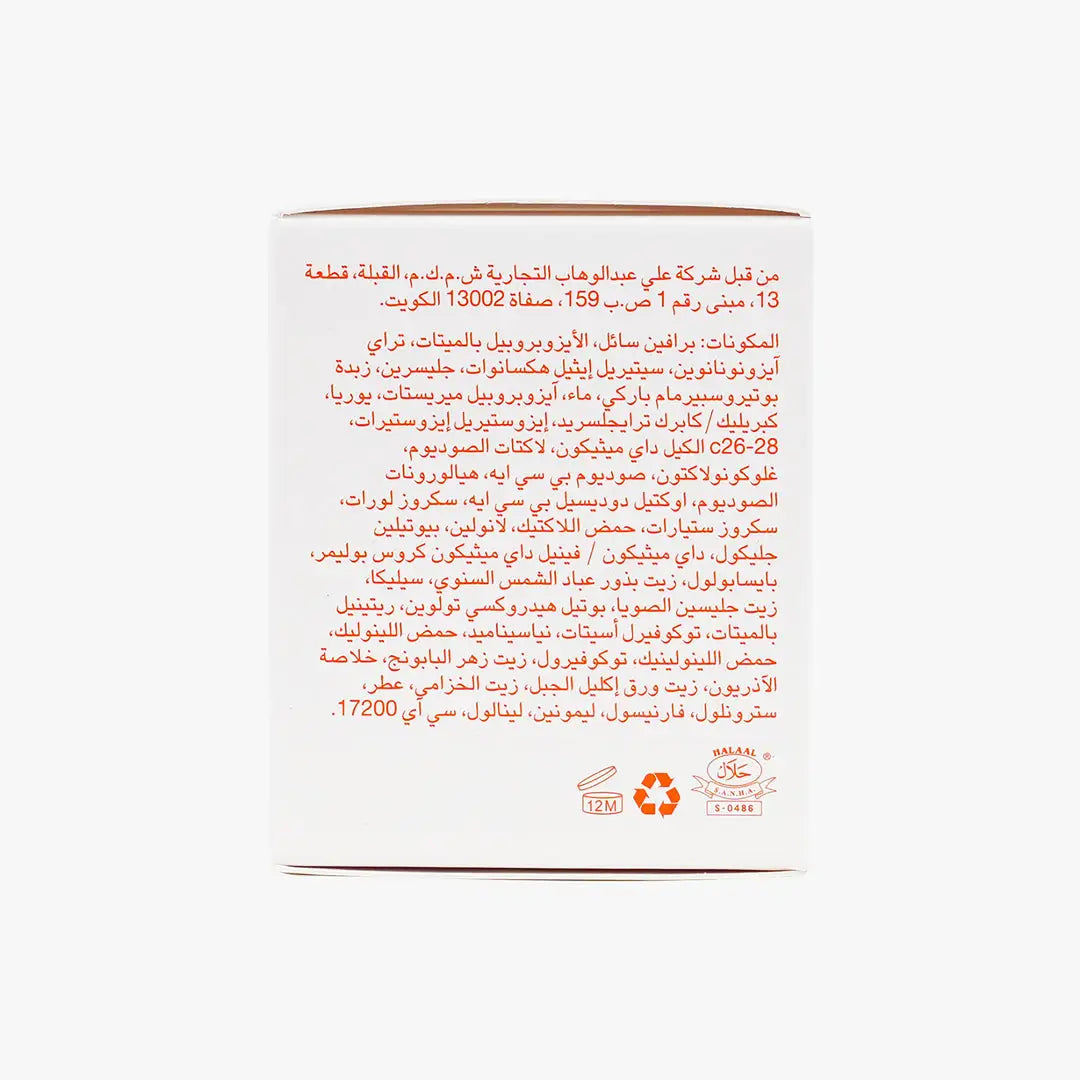 من قبل شركة علي عبدالوهاب التجارية ش.م.ك.م، القبلة، قطعة
13، مبنى رقم 1 ص.ب 159، صفاة 13002 الكويت.
المكونات: برافين سائل، الأيزوبروبيل بالميتات، تراي
آيزونونانوين، سيتيريل إيثيل هكسانوات، جليسرين، زبدة
بوتيروسبيرمام باركي، ماء، آيزوبروبيل ميريستات، يوريا،
كبريليك/كابرك ترايجلسريد، إيزوستيريل إيزوستيرات،
c26-28 الكيل داي ميثيكون، لاكتات الصوديوم،
غلوكونولاكتون، صوديوم بي سي ايه، هيالورونات
الصوديوم، اوكتيل دوديسيل بي سي ايه، سكروز لورات،
سكروز ستيارات، حمض اللاكتيك، لانولين، بيوتيلين
جليكول، داي ميثيكون / فينيل داي ميثيكون كروس بوليمر،
بايسابولول، زيت بذور عباد الشمس السنوي، سيليكا،
زيت جليسين الصويا، بوتيل هيدروكسي تولوين، ريتينيل
بالميتات، توكوفيرل أسيتات، نياسيناميد، حمض اللينوليك،
حمض اللينولينيك، توكوفيرول، زيت زهر البابونج، خلاصة
الآذريون، زيت ورق إكليل الجبل، زيت الخزامى، عطر،
سترونلول، فارنيسول، ليمونين، لينالول، سي آي 17200.
HALAAL ®
حلال
S.A.N.H.A.
S-0486
12M